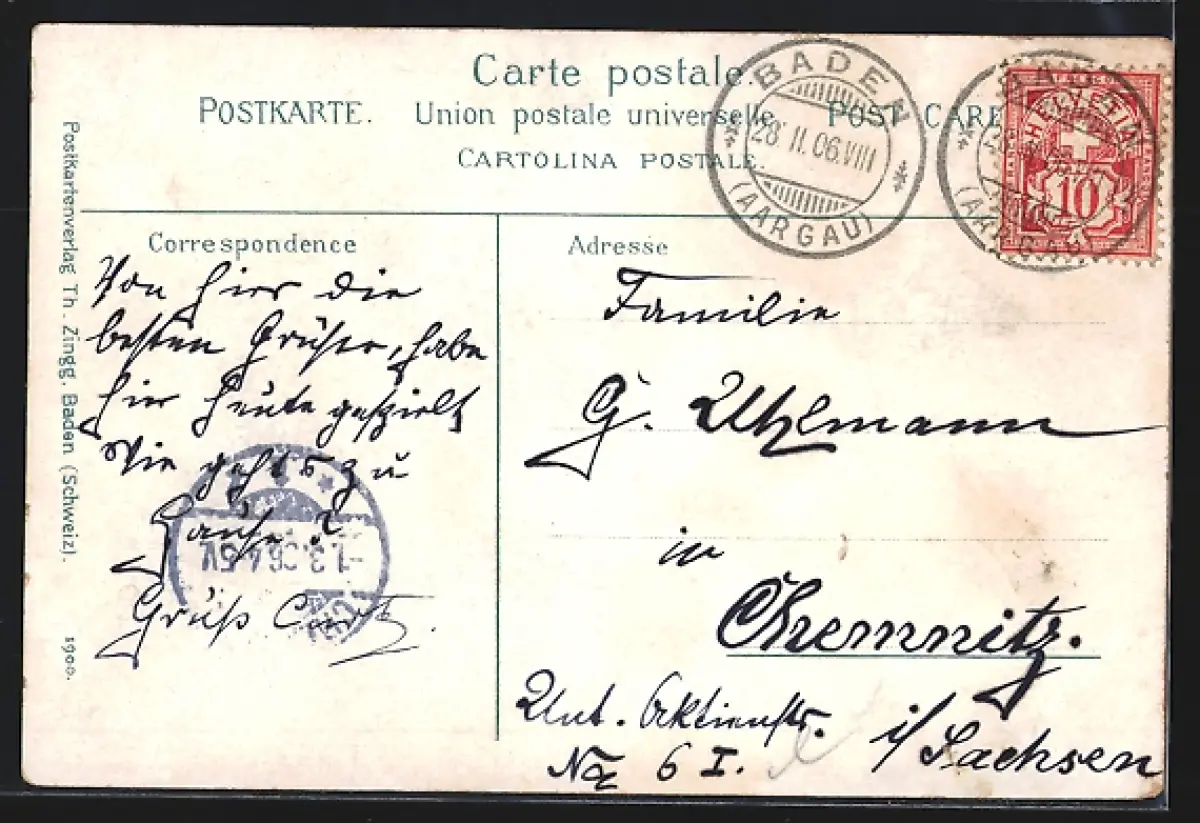 Carte postale.
POSTKARTE. Union postale universelle. POST CARD
CARTOLINA POSTALE.
BADEN
28 II. 06. VIII
(AARGAU)
BADEN
(AARGAU)
HELVETIA
10
Correspondence
Von hier die
besten Grüße, habe
hier heute gespielt
Wie gehts zu
Hause?
Gruß Curt.
-1.3.06.4-5V.
Adresse
Familie
G. Uhlmann
in
Chemnitz.
Unt. Aktienstr. i/ Sachsen
No 6 I.
Postkartenverlag Th. Zingg. Baden (Schweiz). 1900.